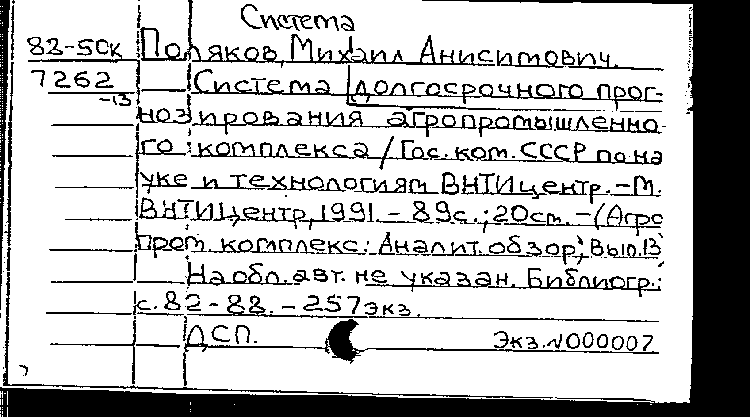 Система
82-5СК Поляков, Михаил Анисимович.
7262 Система долгосрочного прог-
-13 нозирования агропромышленно-
го комплекса / Гос. ком. СССР по на
уке и технологиям ВНТИцентр. - М.
ВНТИЦентр, 1991. - 89с.; 20см. - (Агро
пром. комплекс: Аналит. обзор; Вып.13
На обл. авт. не указан. Библиогр.:
с. 82-88. - 257экз.
ДСП. Экз. №000007